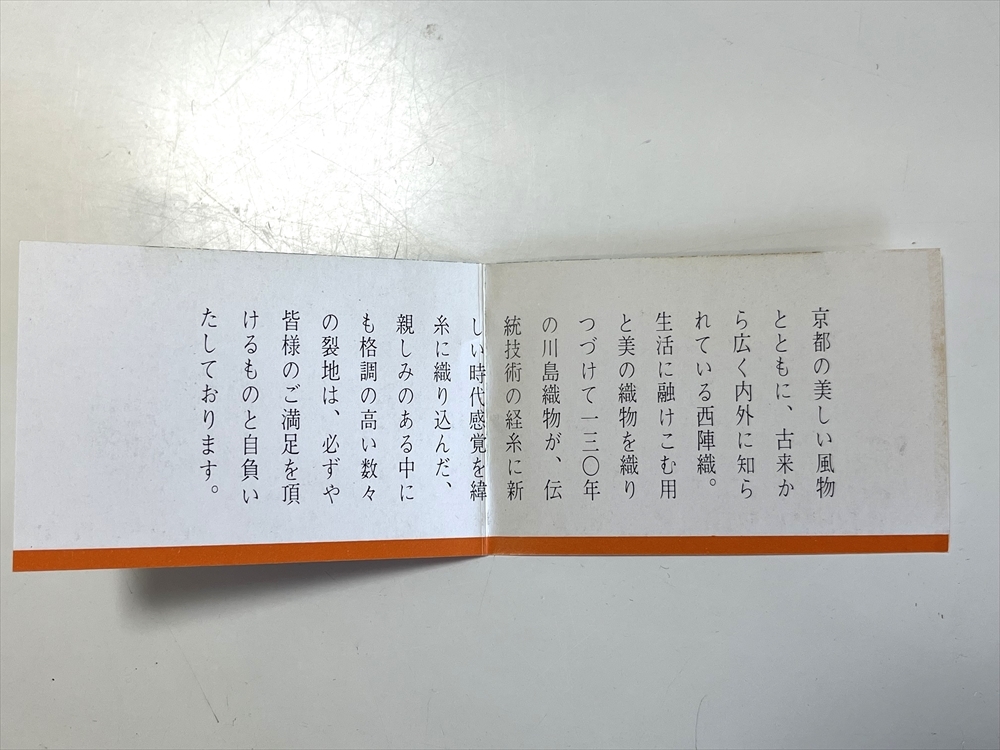 京都の美しい風物
とともに、古来か
ら広く内外に知ら
れている西陣織。
生活に融けこむ用
と美の織物を織り
つづけて一三〇年
の川島織物が、伝
統技術の経糸に新
しい時代感覚を緯
糸に織り込んだ、
親しみのある中に
も格調の高い数々
の裂地は、必ずや
皆様のご満足を頂
けるものと自負い
たしております。